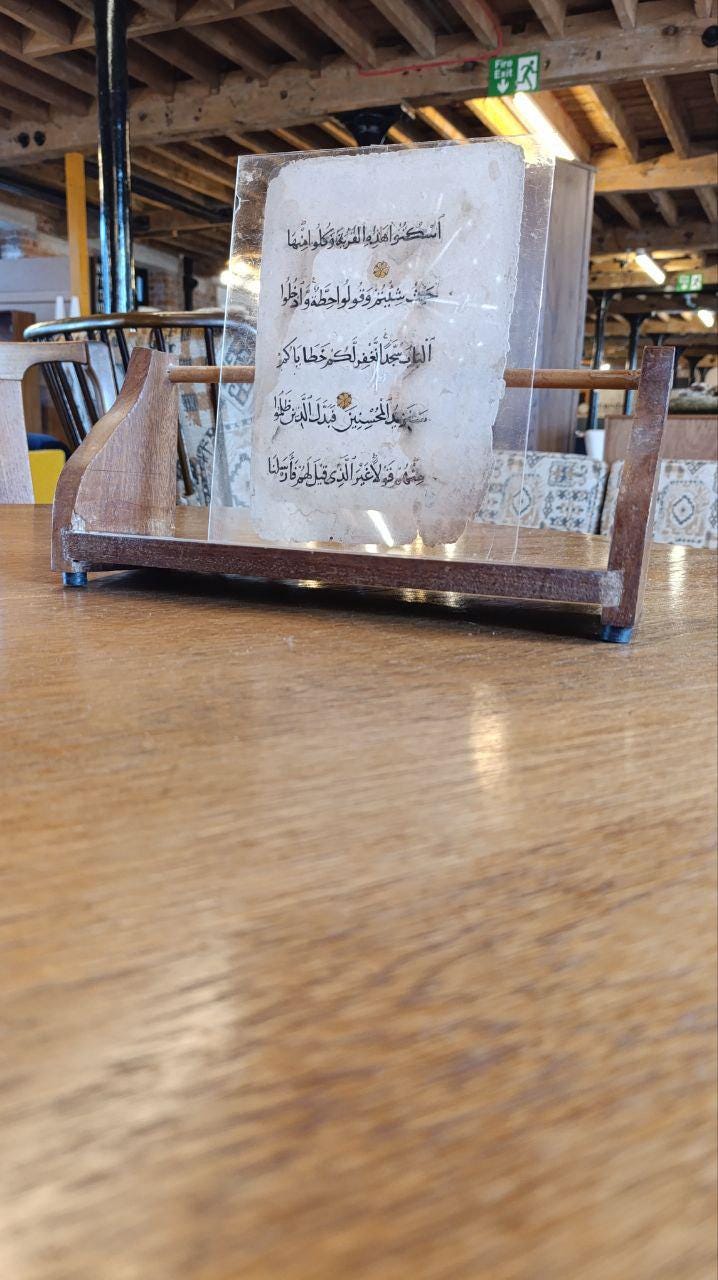 Fire
Exit
ٱسْكُنُوا هَٰذِهِ ٱلْقَرْيَةَ وَكُلُوا مِنْهَا
حَيْثُ شِئْتُمْ وَقُولُوا حِطَّةٌ وَٱدْخُلُوا
ٱلْبَابَ سُجَّدًا نَّغْفِرْ لَكُمْ خَطَايَاكُمْ
سَنَزِيدُ ٱلْمُحْسِنِينَ فَبَدَّلَ ٱلَّذِينَ ظَلَمُوا
مِنْهُمْ قَوْلًا غَيْرَ ٱلَّذِى قِيلَ لَهُمْ فَأَرْسَلْنَا